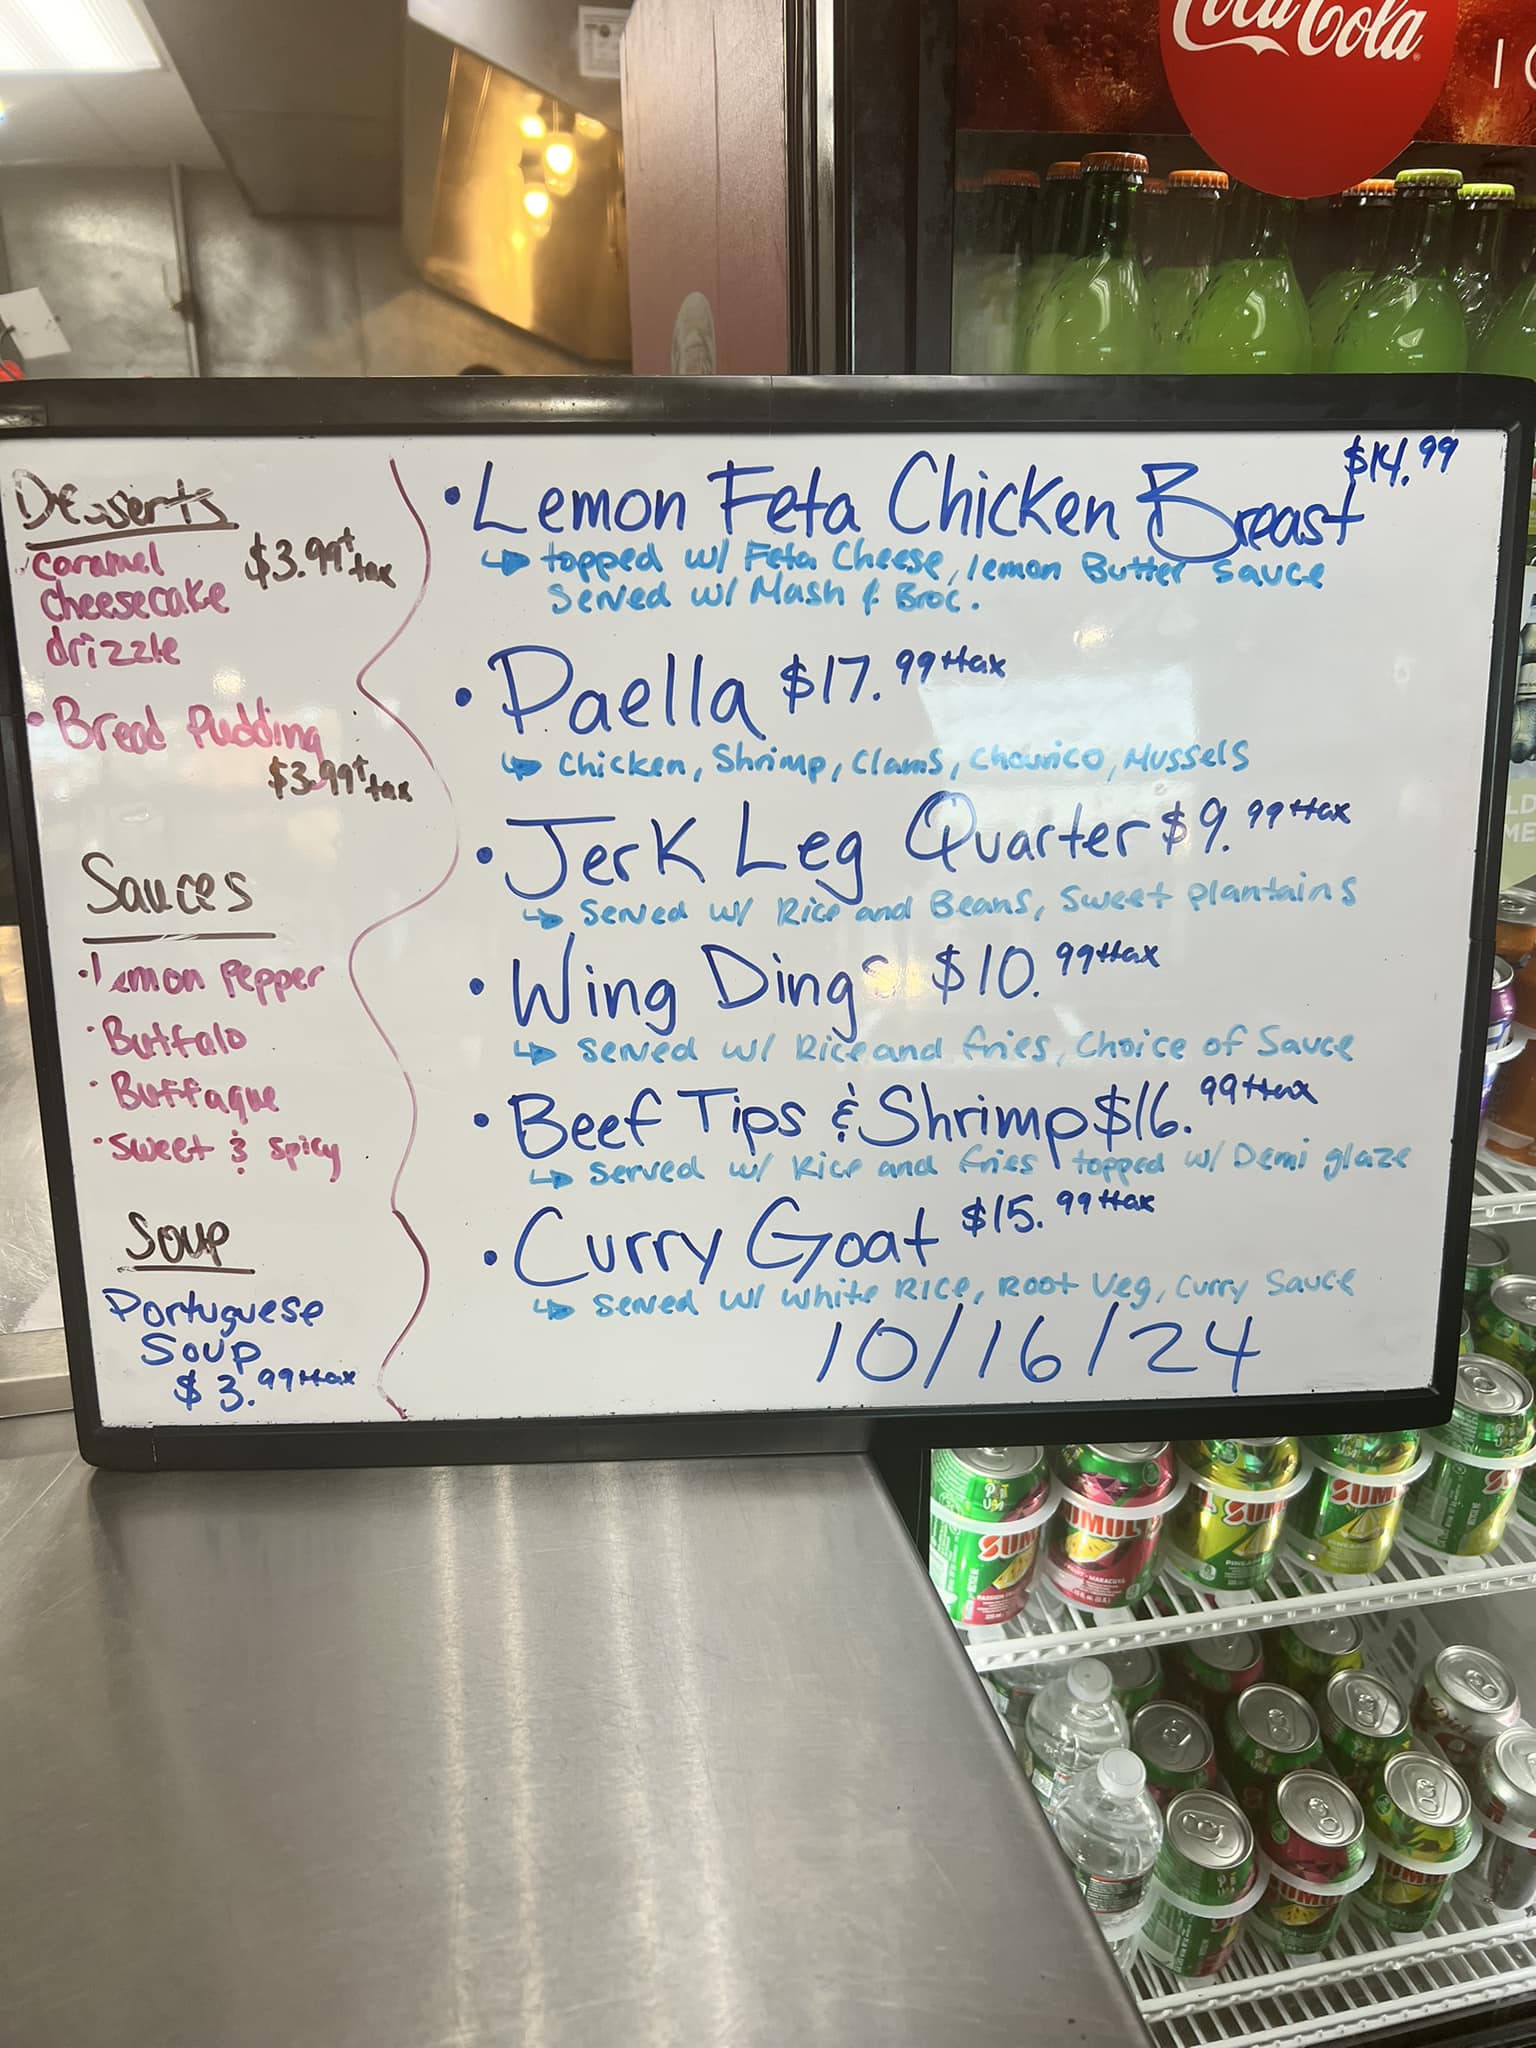 Coca-Cola
Desserts
caramel
cheesecake
drizzle
$3.99+tax
• Bread Pudding
$3.99+tax
Sauces
• Lemon Pepper
• Buffalo
• Buffaque
• Sweet & Spicy
Soup
Portuguese
Soup
$3.99+tax
• Lemon Feta Chicken Breast $14.99
topped w/ Feta Cheese, lemon Butter Sauce
Served w/ Mash & Broc.
• Paella $17.99+tax
Chicken, Shrimp, Clams, Chourico, Mussels
• Jerk Leg Quarter $9.99+tax
Served w/ Rice and Beans, Sweet plantains
• Wing Dings $10.99+tax
Served w/ Rice and fries, Choice of Sauce
• Beef Tips & Shrimp $16.99+tax
Served w/ Rice and fries topped w/ Demi glaze
• Curry Goat $15.99+tax
Served w/ White Rice, Root Veg, Curry Sauce
10/16/24
SUMOL
SUMOL
SUMOL